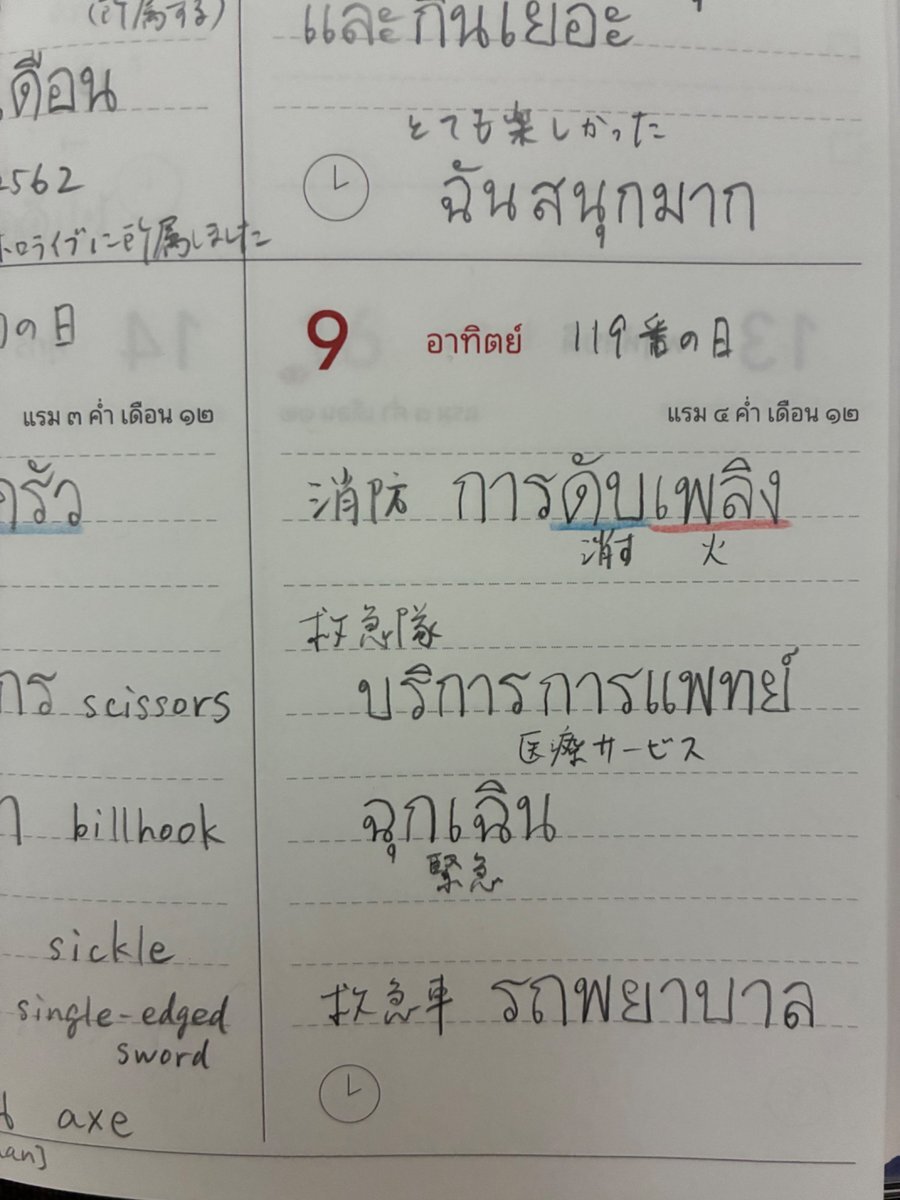 (所属する)
และกินเยอะ
เดือน
とても楽しかった
2562
ฉันสนุกมาก
ホロライブに所属しました
の日
9 อาทิตย์ 119番の日
แรม ๓ ค่ำ เดือน ๑๒
แรม ๔ ค่ำ เดือน ๑๒
ครัว
消防 การดับเพลิง
消す 火
救急隊
กร scissors
บริการการแพทย์
医療サービス
billhook
ฉุกเฉิน
緊急
sickle
救急車 รถพยาบาล
single-edged
sword
axe